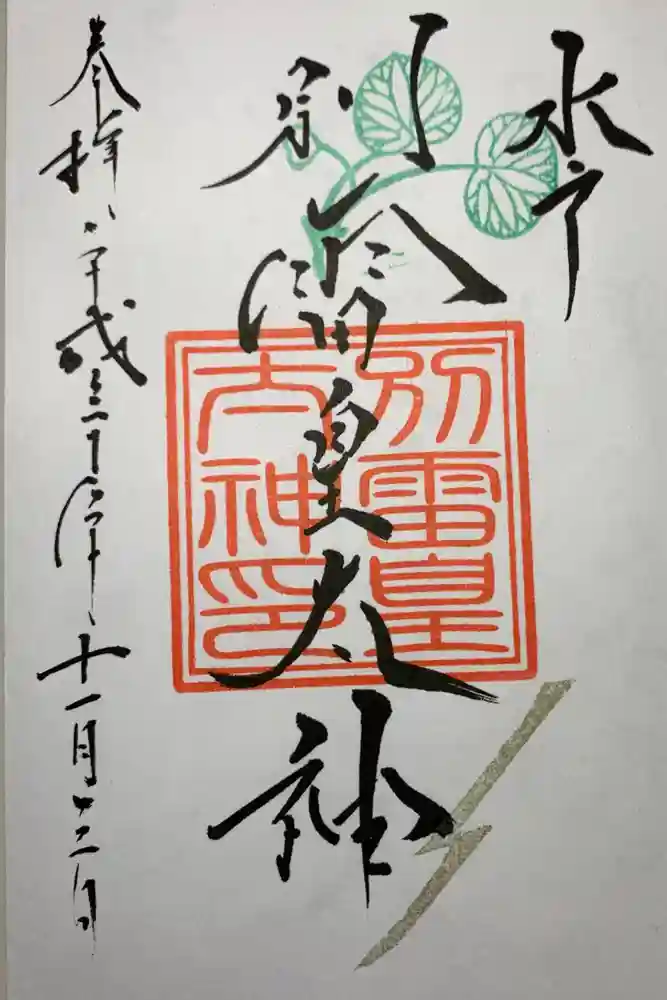 水戸
別雷皇太神
別雷皇
太神印
奉拝
平成三十年
十一月十二日